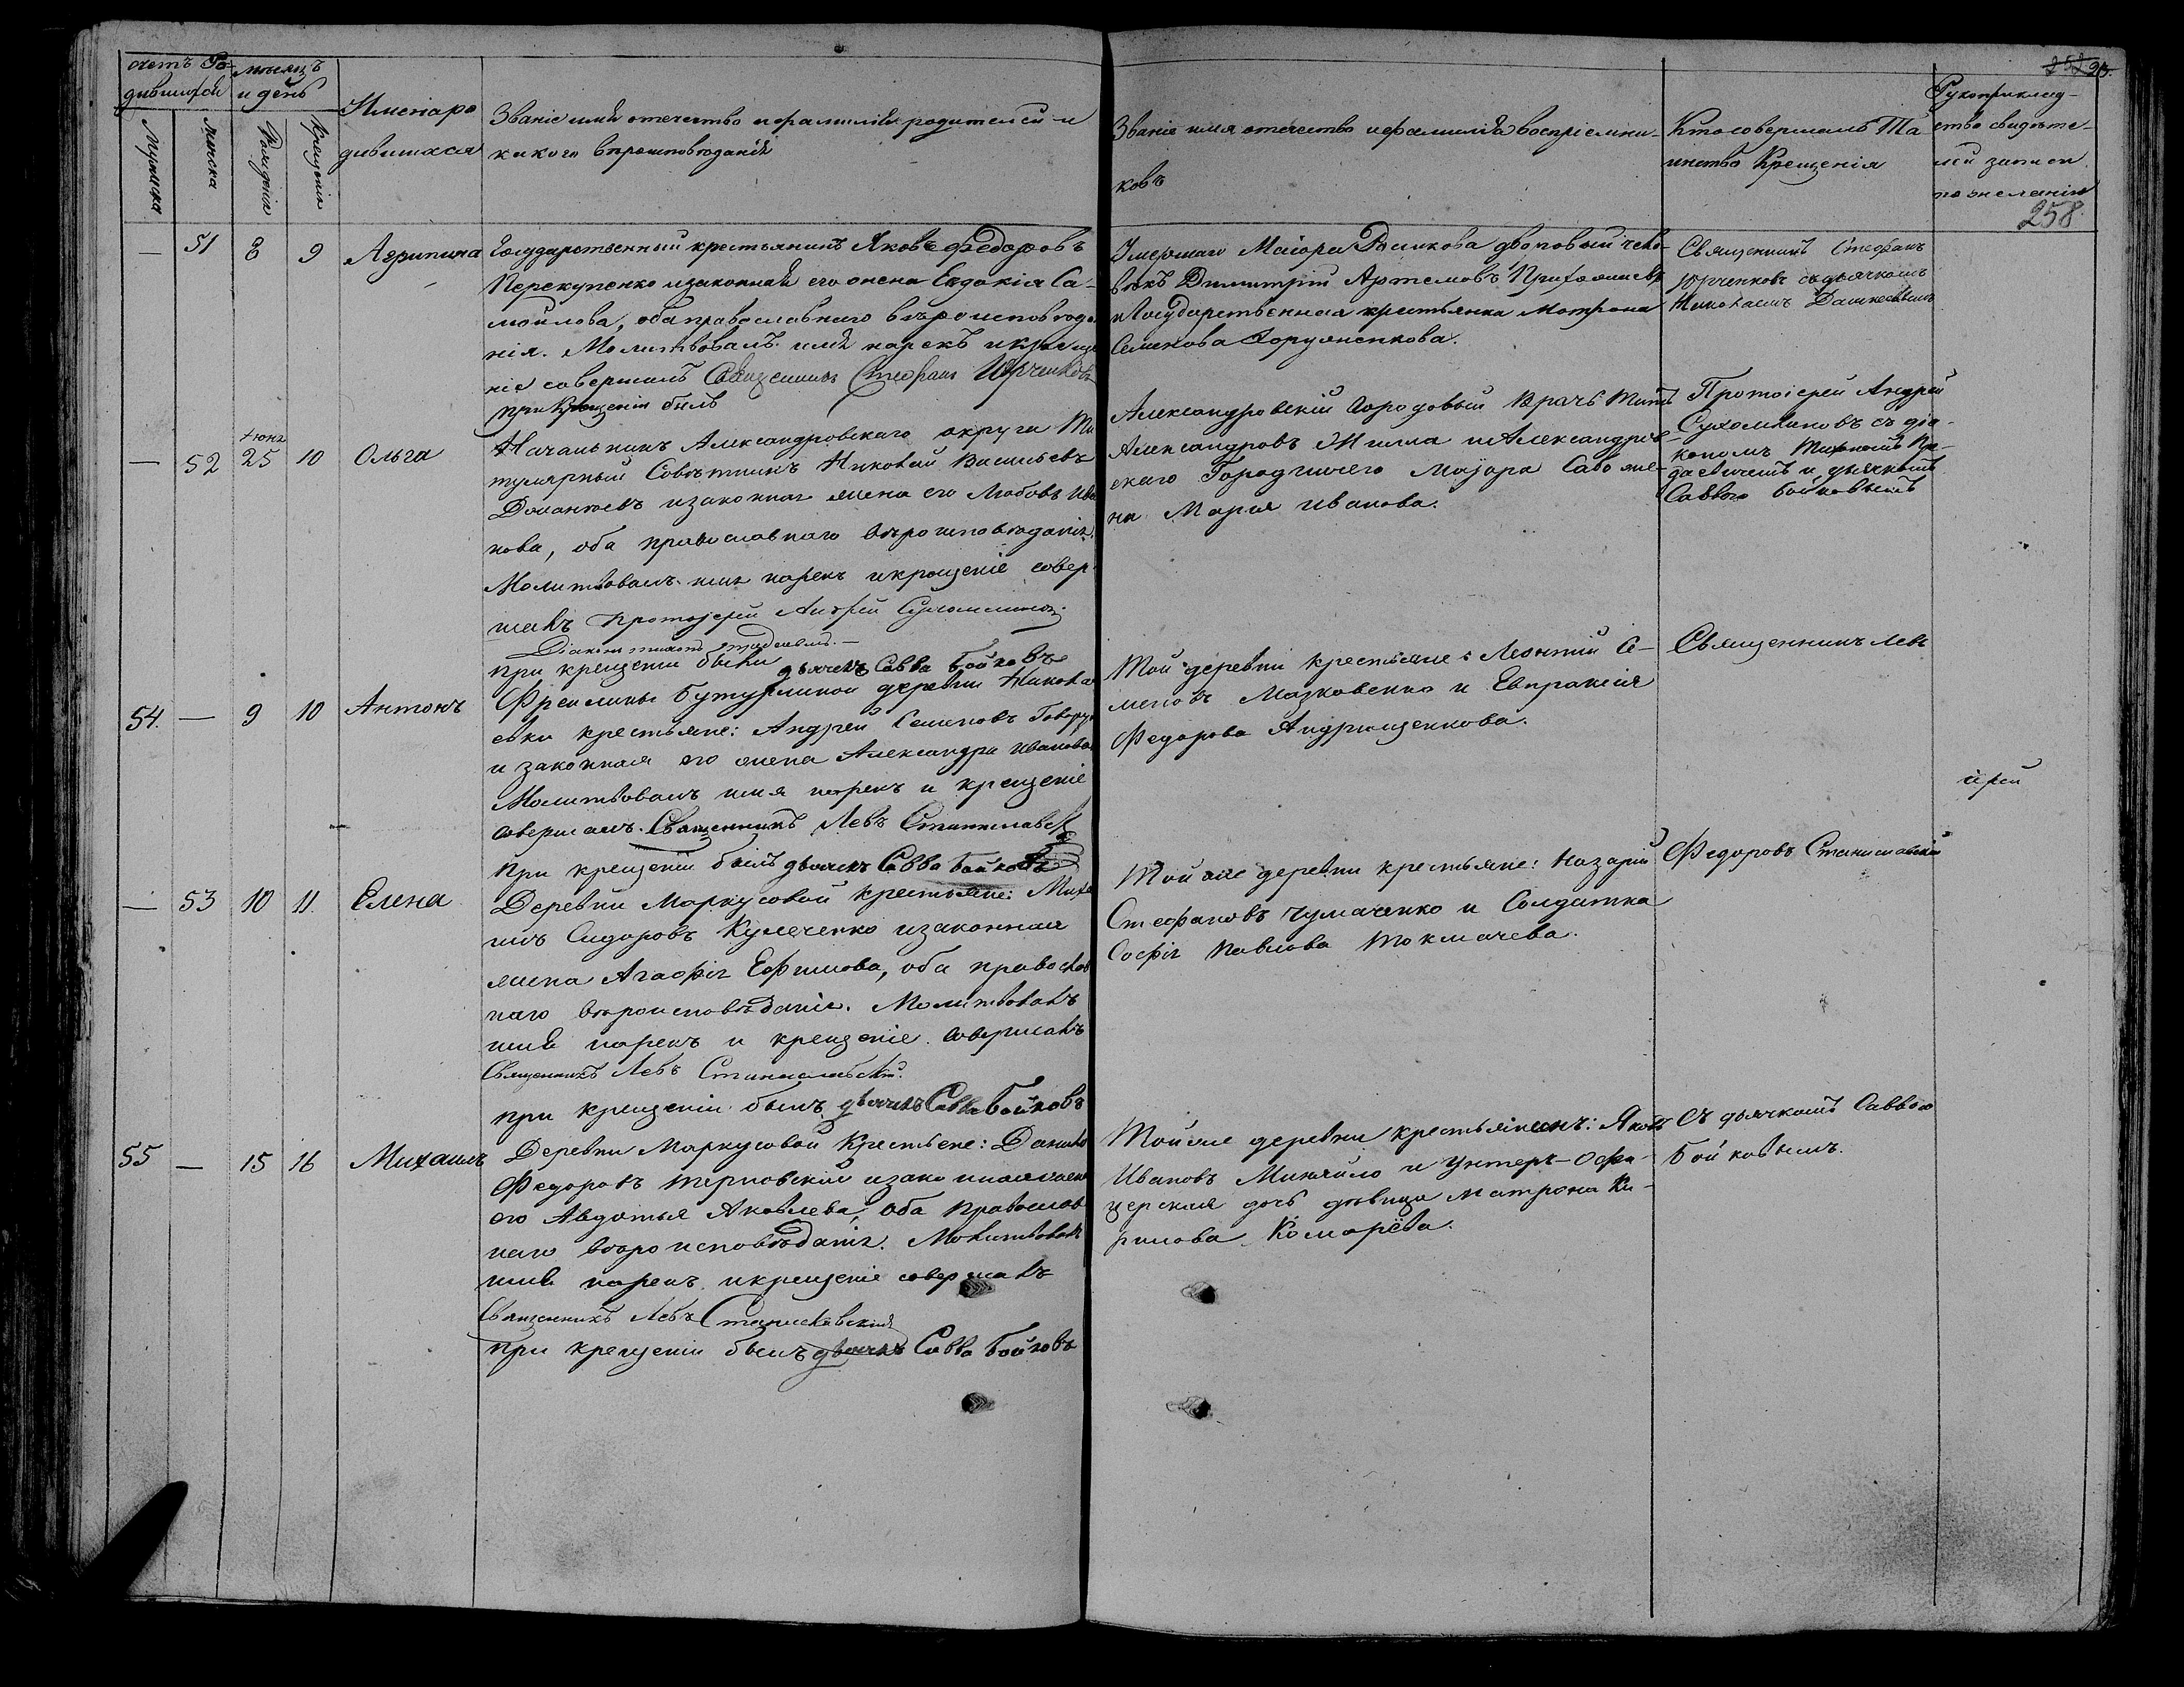 счетъ Ро-
дившихся
мѣсяцъ
и день
Мужеска
Женска
Рожденія
Крещенія
Имена ро
дившихся
Званіе имя отечество и фамилія родителей и
какого вѣроисповѣданія
Званіе имя отечество и фамилія воспріемни-
ковъ
Кто совершалъ Та
инство Крещенія
Рукоприклад-
ство свидѣте-
лей записи
по желанію
258.
— 51 8 9 Агрипина
Государственный крестьянинъ Яковъ Федоровъ
Перекупенко и законная его жена Евдокія Са-
мойлова, оба православнаго вѣроисповѣда
нія. Молитвовалъ имя нарекъ и креще
ніе совершалъ Священникъ Стефанъ Юрченковъ
при крещеніи былъ
Умершаго Маіора Волкова дворовый чело-
вѣкъ Димитрій Артемовъ
и Государственная крестьянка Матрона
Семенова
Священникъ Стефанъ
Юрченковъ съ дьячкомъ
Николаемъ Дашкевичемъ
— 52 Іюня 25 10 Ольга
Начальникъ Александровскаго округа Ти
тулярный Совѣтникъ Николай Васильевъ
и законная жена его Любовь Ива
нова, оба православнаго вѣроисповѣданія.
Молитвовалъ имя нарекъ и крещеніе совер-
шалъ Протоіерей Андрей Сухомлиновъ.
Діаконъ Тихонъ
при крещеніи были дьячекъ Савва Бойковъ
Александровскій Городовый Врачъ Титъ
Александровъ Жила и Александров-
скаго Городничего Маіора Саво жe-
на Марія Иванова.
Протоіерей Андрей
Сухомлиновъ съ діа-
кономъ Тихономъ
и дьячкомъ
Саввою Бойковымъ
54. — 9 10 Антонъ
Фрейлины Бутурлиной деревни Никола
евки крестьяне: Андрей Семеновъ Говору
и законная его жена Александра Иванова
Молитвовалъ имя нарекъ и крещеніе
совершалъ. Священникъ Левъ Станиславск
при крещеніи былъ дьячекъ Савва Бойковъ
Той деревни крестьяне: Леонтій Се-
меновъ Мазковенко и Евпраксія
Федорова Андрющенкова.
Священникъ Левъ
ірей
— 53 10 11. Елена
Деревни Маркусовой крестьяне: Миха
илъ Сидоровъ Кулеченко и законная
жена Агафія Ефимова, оба православ
наго вѣроисповѣданія. Молитвовалъ
имя нарекъ и крещеніе совершалъ
Священникъ Левъ Станиславскій.
при крещеніи былъ дьячекъ Савва Бойковъ
Той же деревни крестьяне: Назарій
Стефановъ Чумаченко и Солдатка
Софія Павлова Токмачева.
Федоровъ Станиславскій
55 — 15 16 Михаилъ
Деревни Маркусовой Крестьяне: Данило
Федоровъ Терновскій и законная жена
его Авдотья Яковлева, оба православ
наго вѣроисповѣданія. Молитвовалъ
имя нарекъ и крещеніе совершалъ
Священникъ Левъ Станиславскій
при крещеніи былъ дьячекъ Савва Бойковъ
Той же деревни крестьянинъ: Яковъ
Ивановъ Михайло и Унтеръ-Офи-
церская дочь дѣвица Матрона Ки-
рилова Комарева.
Съ дьячкомъ Саввою
Бойковымъ.